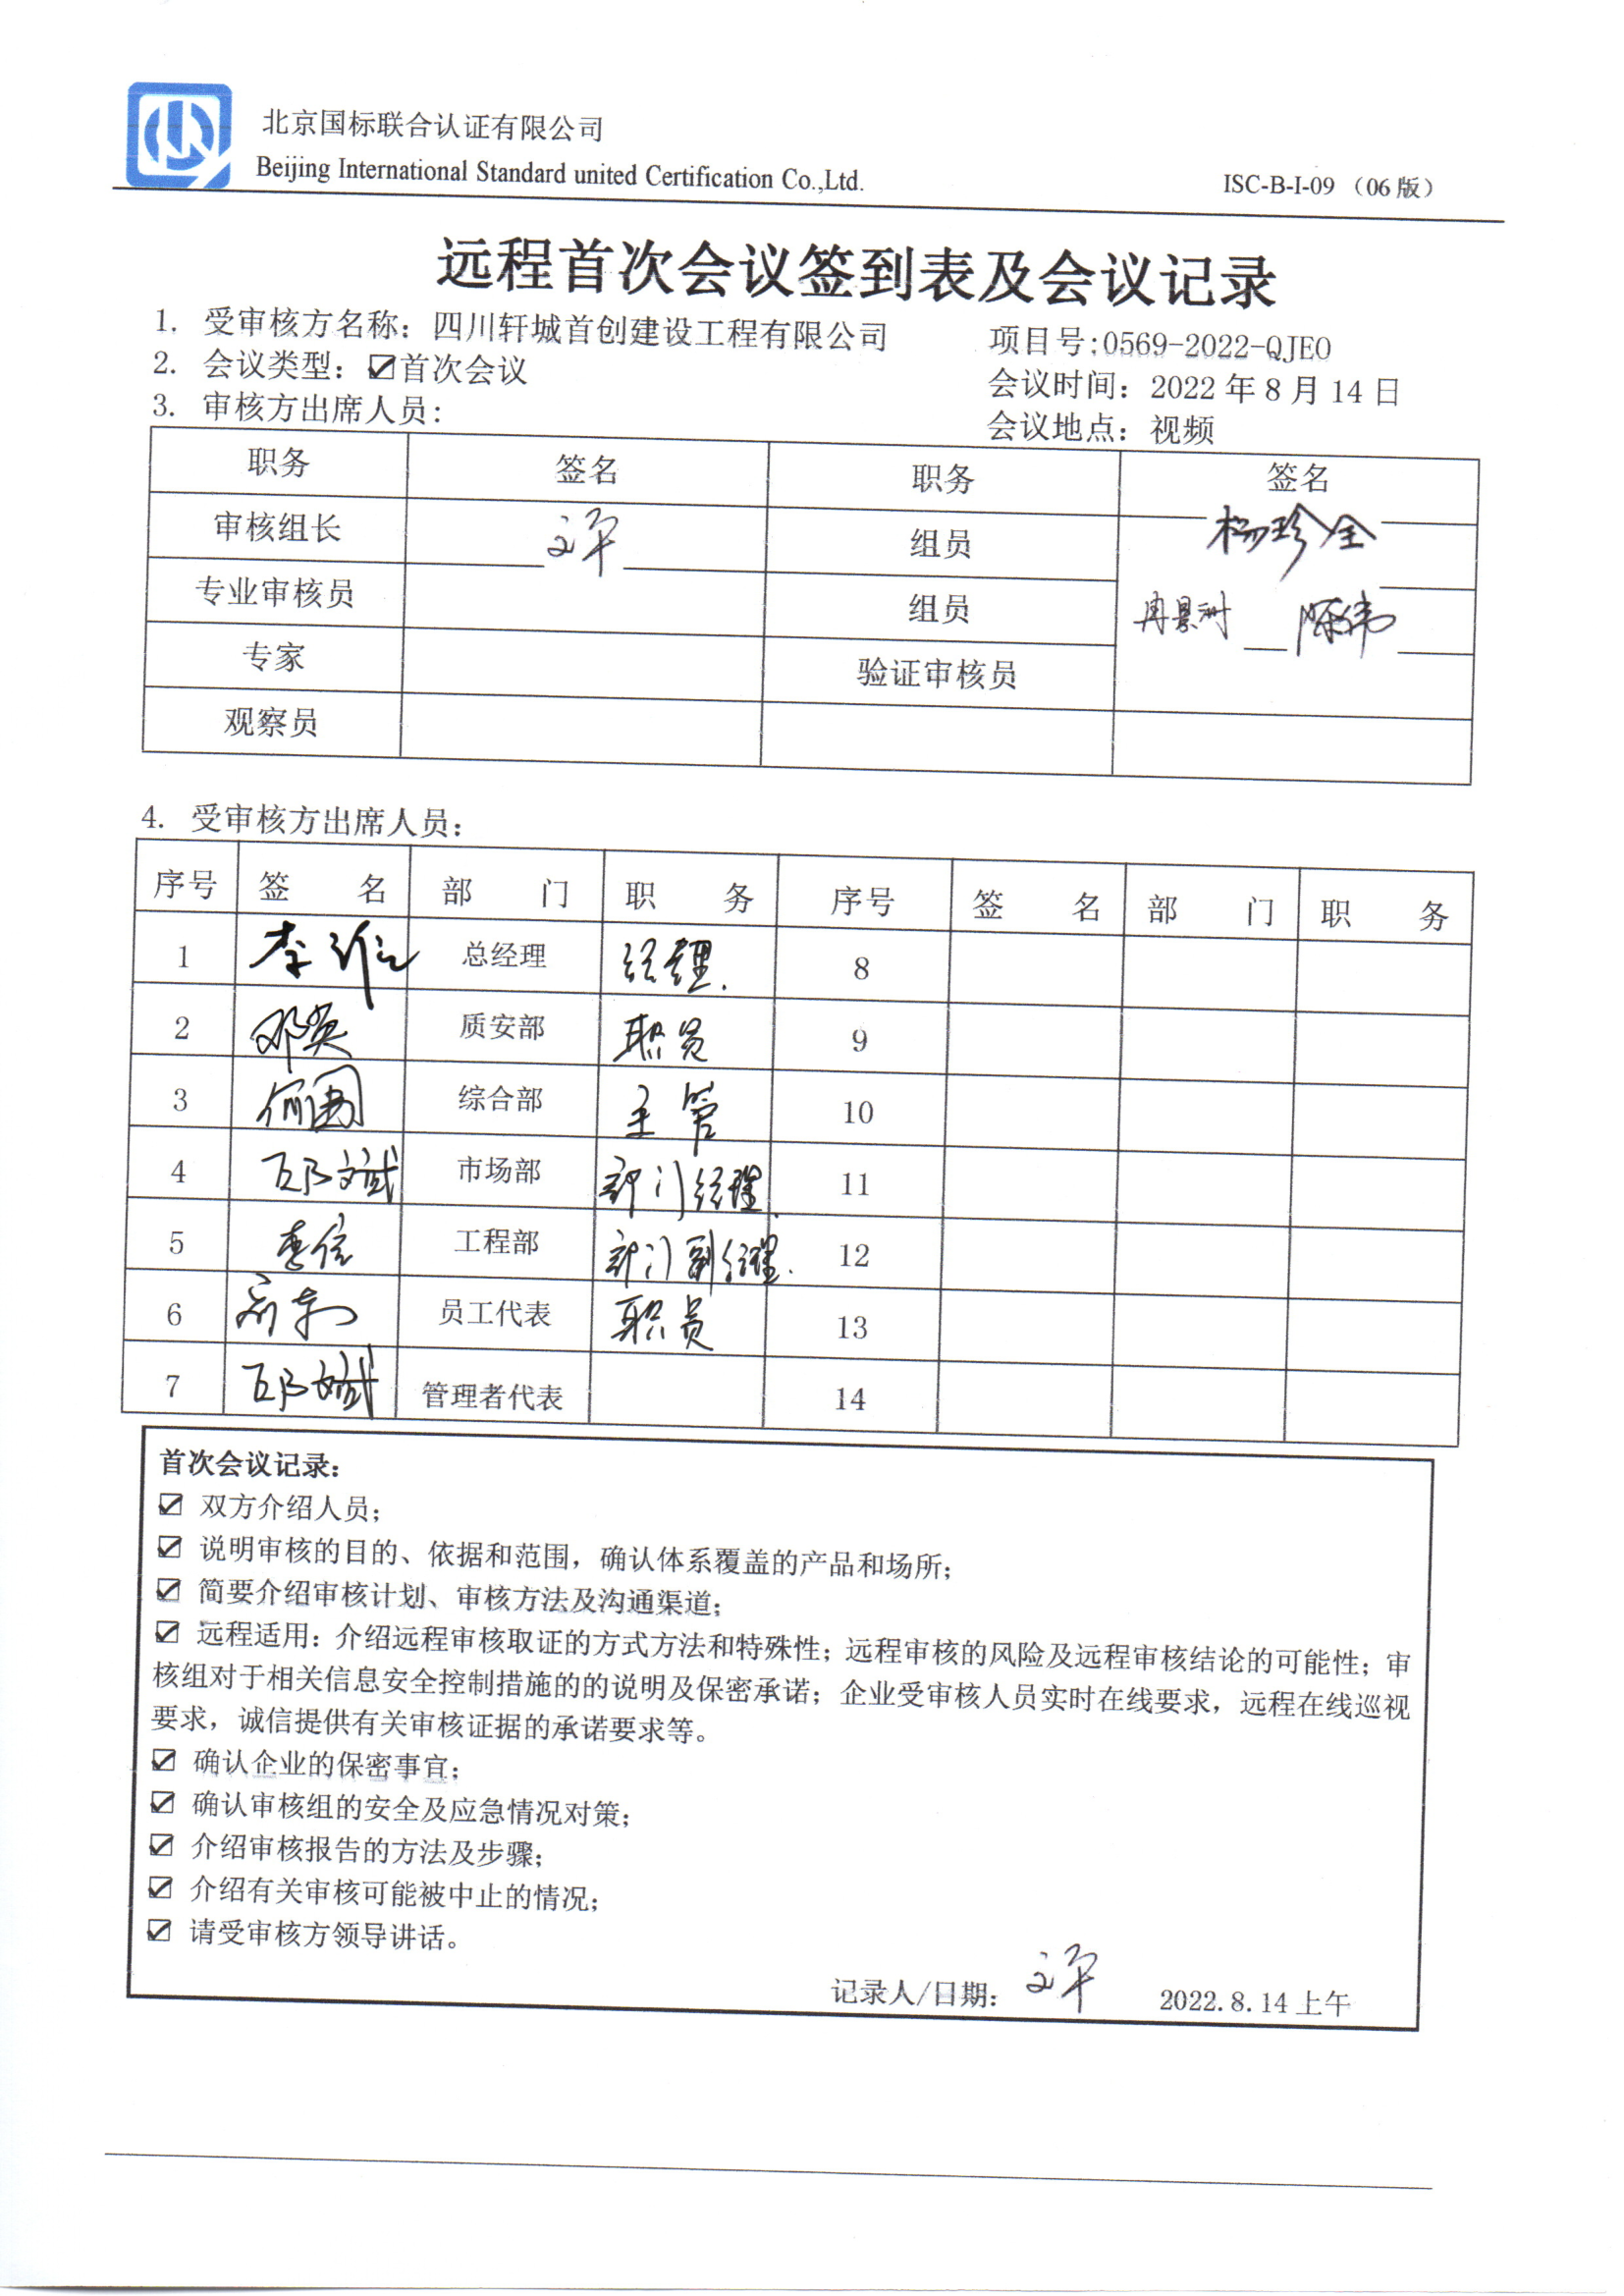 北京国标联合认证有限公司
Beijing International Standard united Certification Co.,Ltd.
ISC-B-I-09 （06版）
远程首次会议签到表及会议记录
1. 受审核方名称：四川轩城首创建设工程有限公司 项目号:0569-2022-QJEO
2. 会议类型：☑首次会议 会议时间：2022年8月14日
3. 审核方出席人员： 会议地点：视频
职务 签名 职务 签名
审核组长 文平 组员 杨珍全
专业审核员 组员 冉景洲 陈伟
专家 验证审核员
观察员
4. 受审核方出席人员：
序号 签 名 部 门 职 务 序号 签 名 部 门 职 务
1 李 总经理 经理. 8
2 邓英 质安部 职员 9
3 何 综合部 主管 10
4 邱斌 市场部 部门经理. 11
5 李信 工程部 部门副经理. 12
6 员工代表 职员 13
7 邱斌 管理者代表 14
首次会议记录：
☑ 双方介绍人员；
☑ 说明审核的目的、依据和范围，确认体系覆盖的产品和场所；
☑ 简要介绍审核计划、审核方法及沟通渠道；
☑ 远程适用：介绍远程审核取证的方式方法和特殊性；远程审核的风险及远程审核结论的可能性；审
核组对于相关信息安全控制措施的的说明及保密承诺；企业受审核人员实时在线要求，远程在线巡视
要求，诚信提供有关审核证据的承诺要求等。
☑ 确认企业的保密事宜；
☑ 确认审核组的安全及应急情况对策；
☑ 介绍审核报告的方法及步骤；
☑ 介绍有关审核可能被中止的情况；
☑ 请受审核方领导讲话。
记录人/日期： 文平 2022.8.14上午